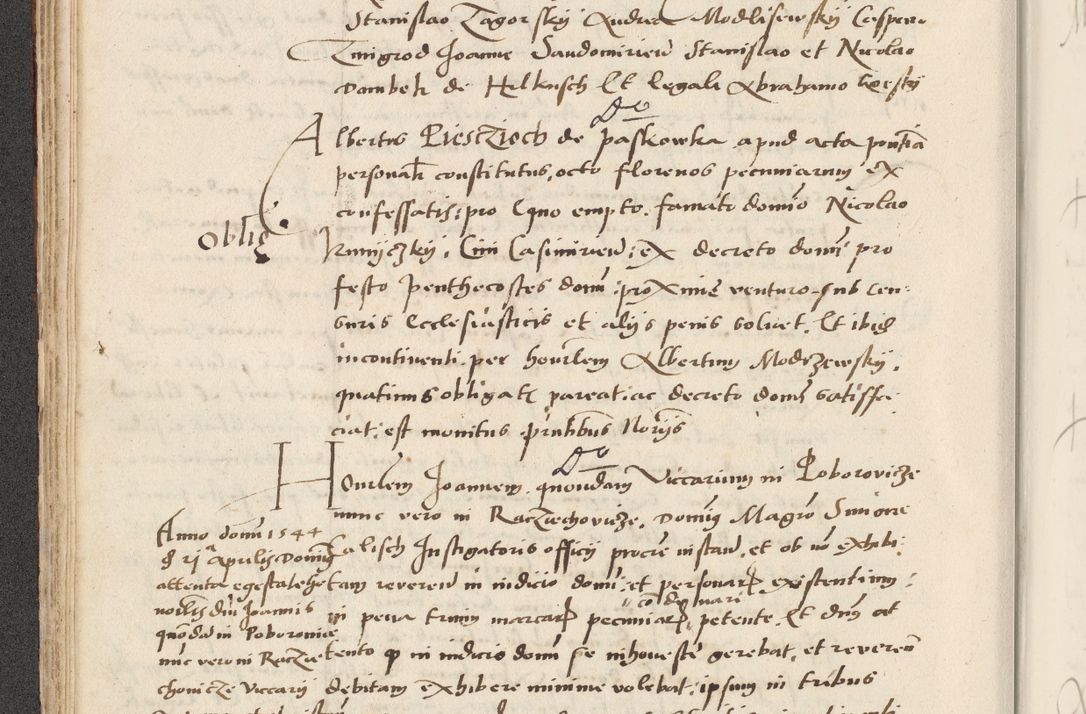 Stanislao Zagorsky Andrea Modlisewsky Casparo
Zmigrod Joanne Sandomirien Stanislao et Nicolao
Dambek de Helkusch Et legali Abrahamo
Do
Albertus Piestzioch de Paskowka apud acta
personalr constitutus, octo florenos pecuniarum ex
confessatis pro equo empto famato domino Nicolao
Oblig
Civi Casimirien ex decreto domi pro
festo Penthecostes domi proxime venturo sub Cen
suris Ecclesiasticis et alijs penis solvet. Et ibid
incontinenti per honrlem Albertum Modrzewsky.
quatinus obligat pareat ac decreto domi satisfa
ciat est monitus prntibus Norijs
Do
Honrlem Joannem quondam Viccarium in Poborovicze
nunc vero in Racziechovicze, Domij Magro Simone
Calisch Instigatoris officij procre instan, et ob
tam reveren in iudicio domi et personar existentium
condignari
in pena trium marcar pecuniar petente. Et dns at
tento in iudicio domi se inhoneste gerebat, et reveren
debitam exhibere minime volebat, ipsum in tribus
Anno domi 1544
aprilis Domi
attenta egestate
Joannis
quondam in Poborovice
nunc vero in Raczie
chovicze Viccarij